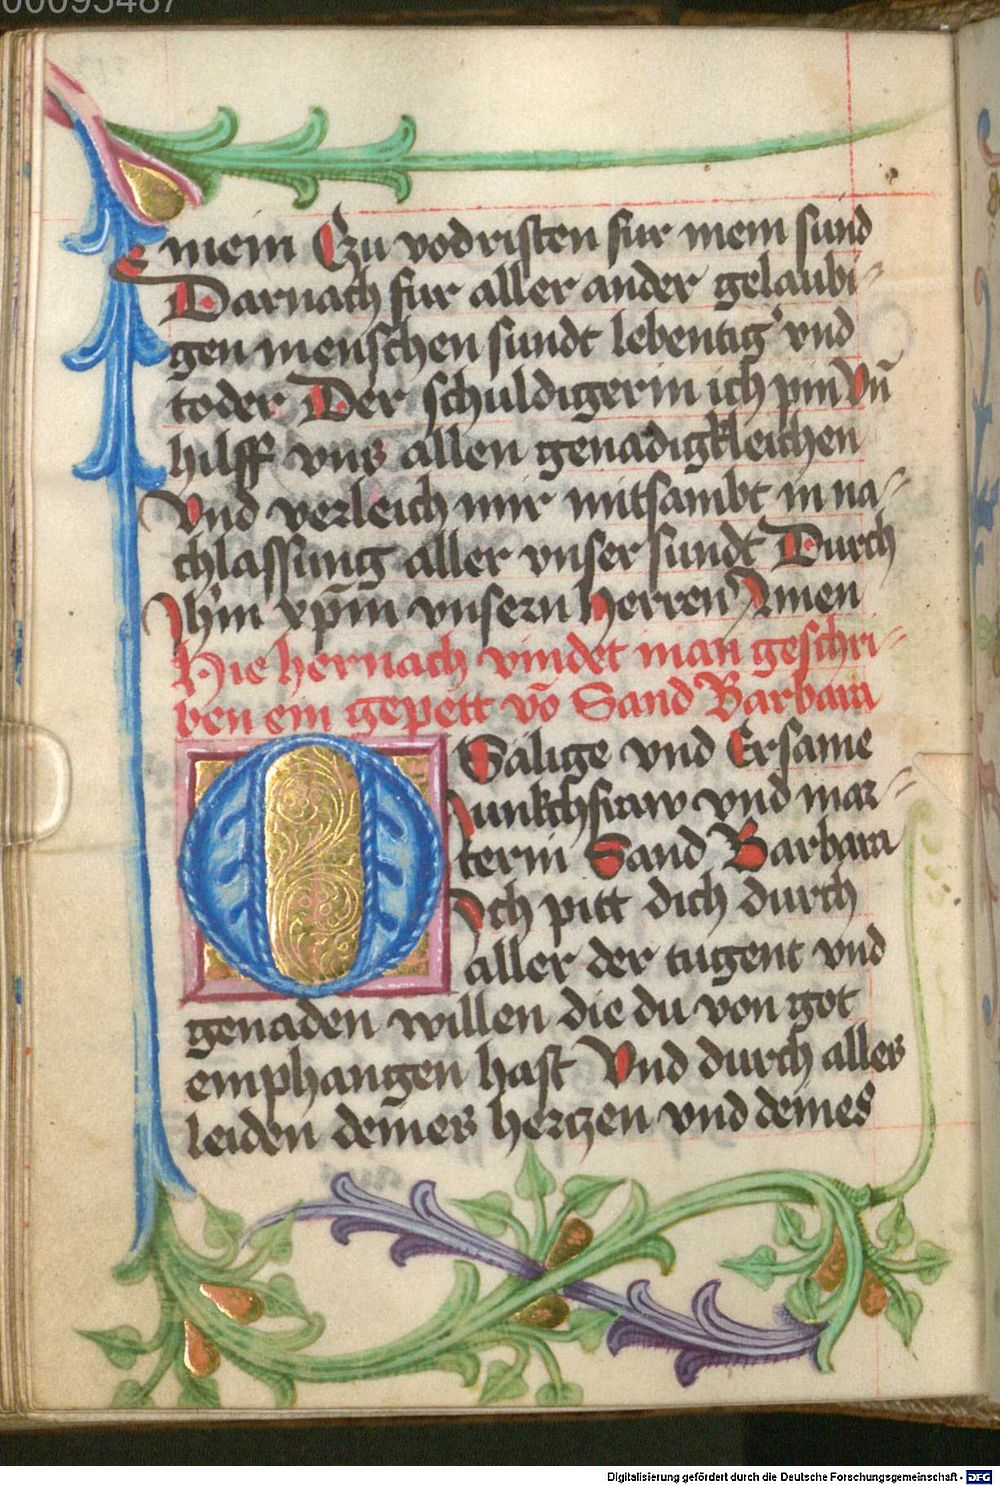 00095487
mein Czu vodristen fur mein sund
Darnach fur aller ander gelaubi-
gen menschen sundt lebentig' vnd
toder Der schuldigerin ich pin Vn̄
hilff vns allen genadigkleichen
Vnd verleich mir mitsambt in na-
chlassung aller vnser sundt Durch
Jhm̄ xp̄m̄ vnsern Herren Amen
Hie hernach vindet man geschri-
ben ein gepett vō Sand Barbara
O Sälige vnd Ersame
Junkchfraw vnd mar-
terin Sand Barbara
Ich pitt dich durch
aller der tugent vnd
genaden willen die du von got
emphangen hast Vnd durch alles
leiden deines herczen vnd deines
Digitalisierung gefördert durch die Deutsche Forschungsgemeinschaft - DFG